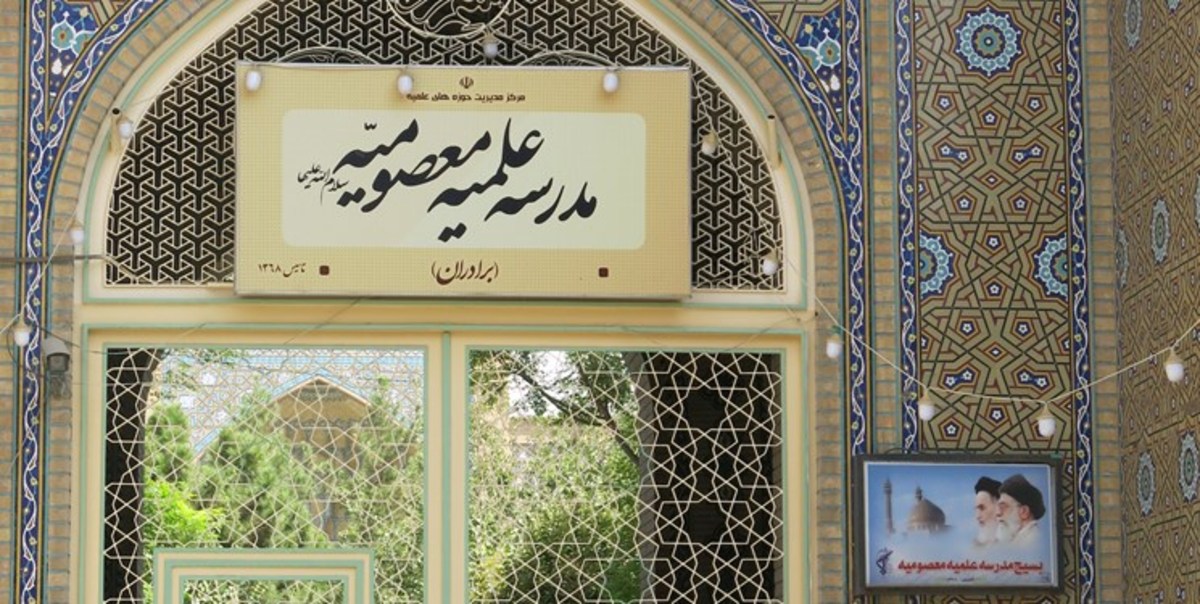 مرکز مدیریت حوزه های علمیه
مدرسه علمیه معصومیّه سلام الله علیها
(برادران)
تاسیس ۱۳۶۸
بسیج مدرسه علمیه معصومیه